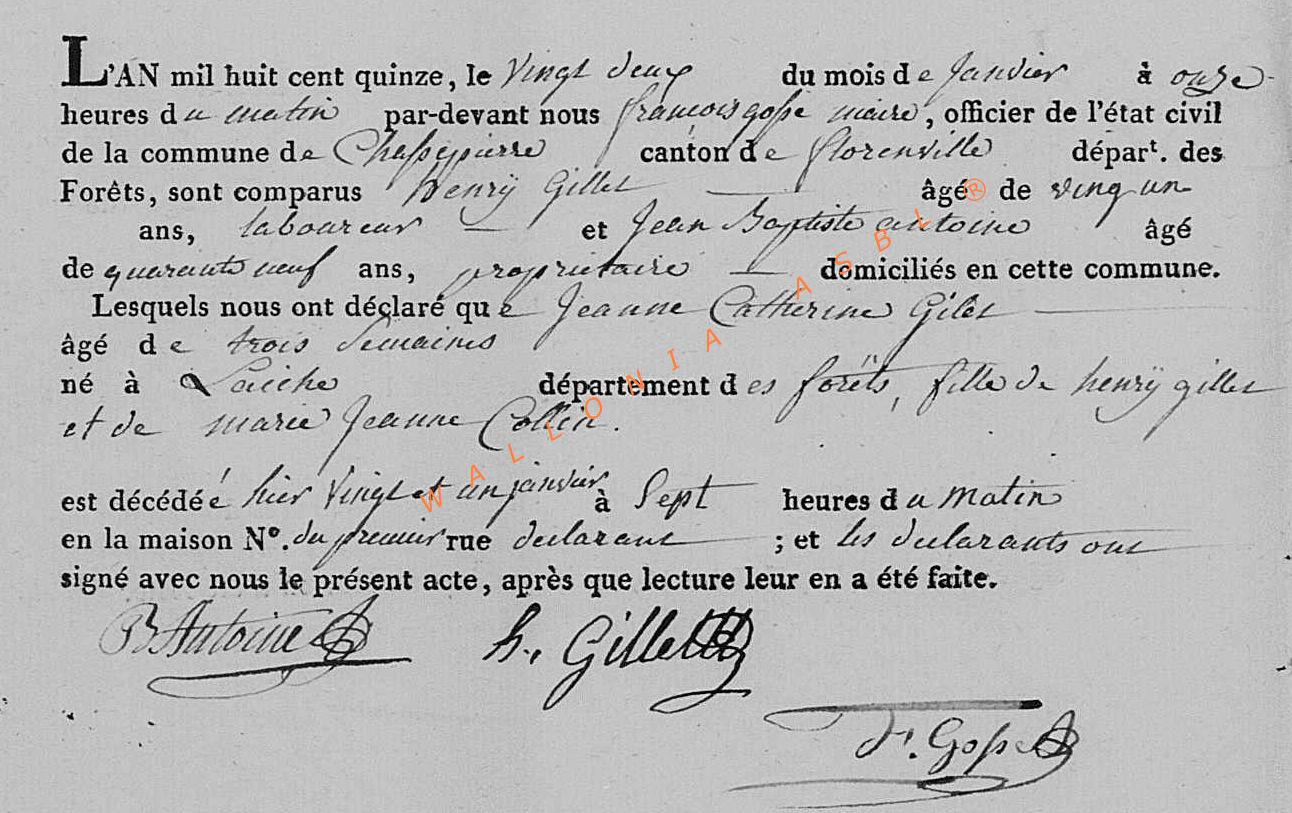 L'AN mil huit cent quinze, le Vingt deux du mois de Janvier à onze
heures du matin par-devant nous françois gosse maire, officier de l'état civil
de la commune de Chassepierre canton de florenville départ. des
Forêts, sont comparus henrÿ Gillet âgé de vingt un
ans, laboureur et Jean Baptiste antoine âgé
de quarante neuf ans, proprietaire domiciliés en cette commune.
Lesquels nous ont déclaré que Jeanne Catherine Gilet
âgé de trois Semaines
né à Laiche département des forêts, fille de henrÿ gillet
et de marie Jeanne Collin.
est décédéé hier Vingt et un janvier à Sept heures du matin
en la maison Nº. du premier rue declarant ; et les declarants ont
signé avec nous le présent acte, après que lecture leur en a été faite.
B Antoine h. Gillet
f. Gosse
WALLONIA ASBL ®